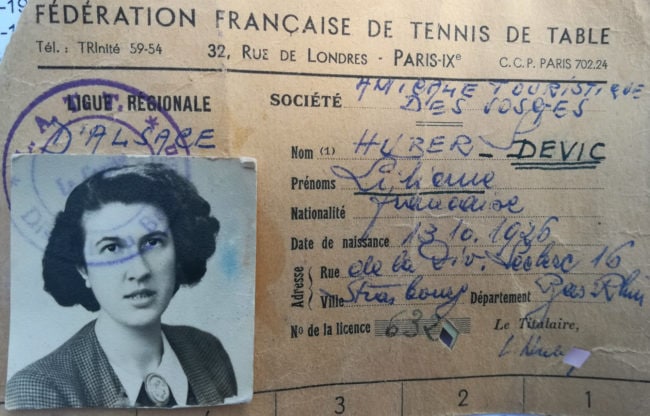 -19
FÉDÉRATION FRANÇAISE DE TENNIS DE TABLE
Tél. : TRInité 59-54 32, RUE DE LONDRES - PARIS-IXe C.C.P. PARIS 702.24
LIGUE RÉGIONALE
D'ALSACE
SOCIÉTÉ AMICALE TOURISTIQUE
DES VOSGES
Nom (1) HUBER - DEVIC
Prénoms Liliane
Nationalité française
Date de naissance 13.10.1926
Adresse
Rue de la Div. Leclerc 16
Ville Strasbourg Département Bas Rhin
No de la licence 632
Le Titulaire,
L Huber
3 2 1